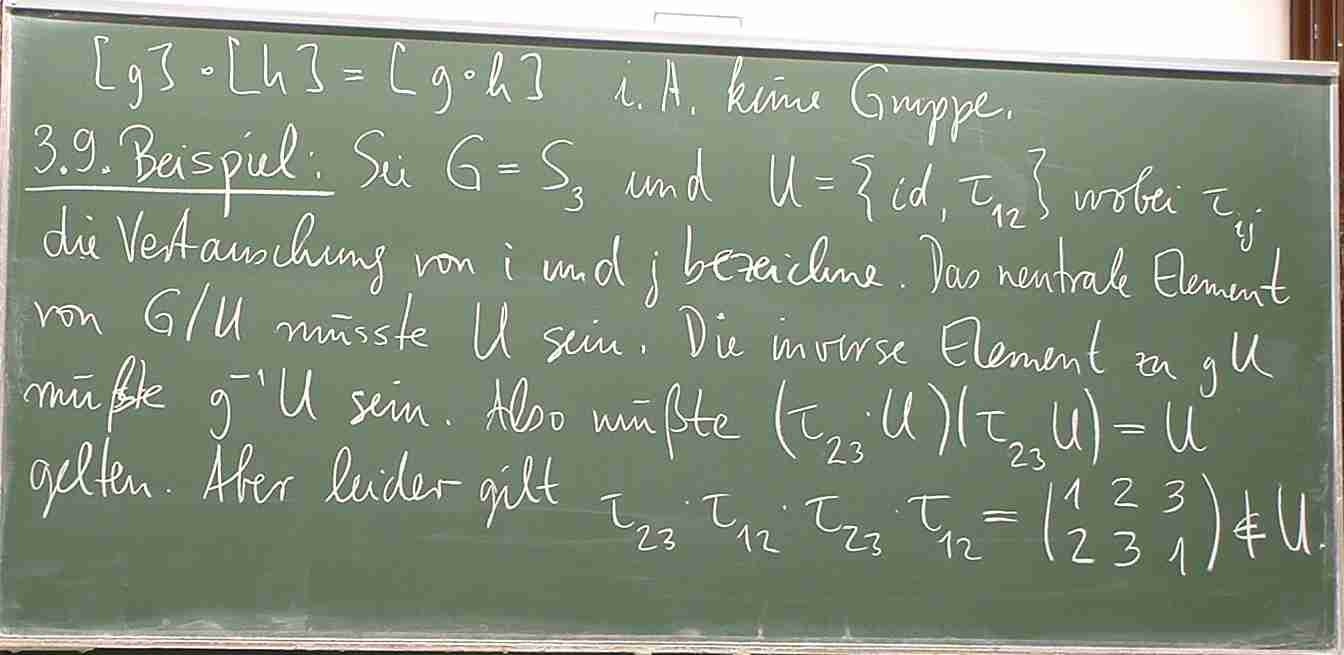 [g]·[h] = [g·h] i.A. keine Gruppe.
3.9. Beispiel: Sei G = S₃ und U = {id, τ₁₂} wobei τᵢⱼ
die Vertauschung von i und j bezeichne. Das neutrale Element
von G/U müsste U sein. Die inverse Element zu gU
müßte g⁻¹U sein. Also müßte (τ₂₃·U)(τ₂₃U) = U
gelten. Aber leider gilt τ₂₃·τ₁₂·τ₂₃·τ₁₂ = (1 2 3 / 2 3 1) ∉ U.